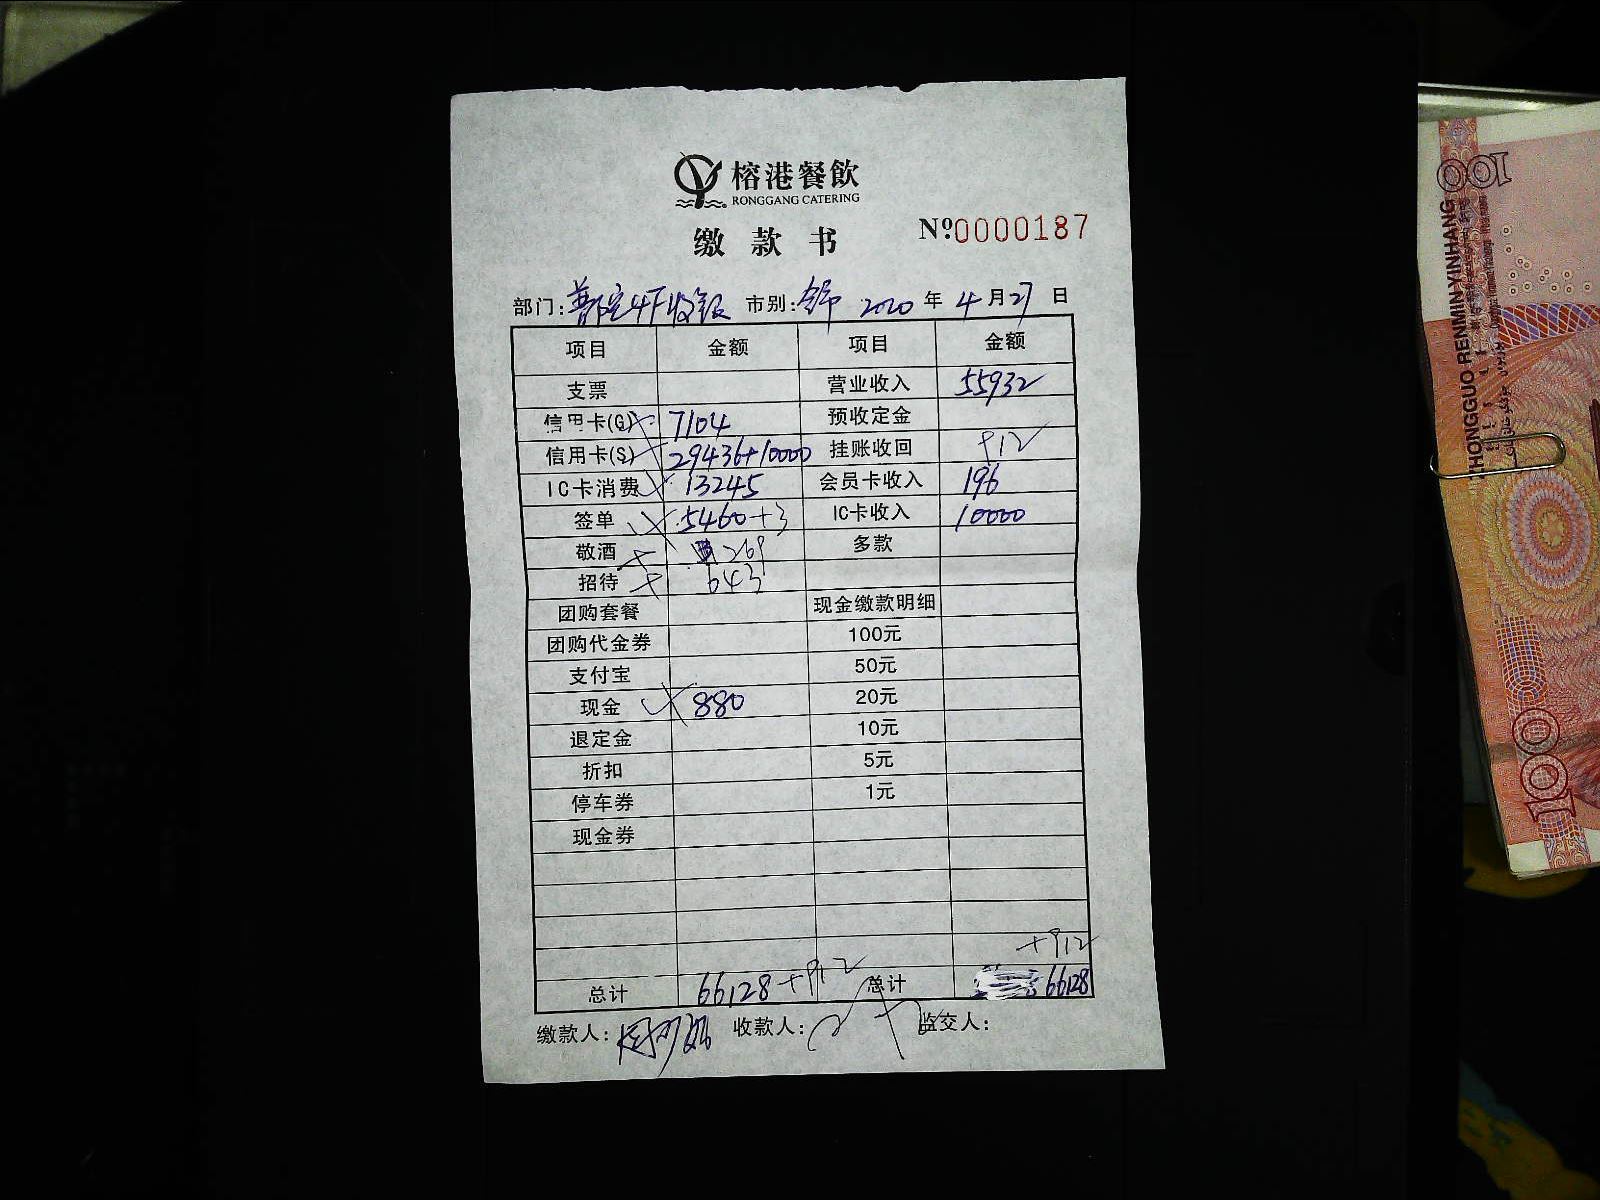 榕港餐飲
RONGGANG CATERING
缴款书 Nº0000187
部门: 4F收银 市别: 2020年4月27日
项目 金额 项目 金额
支票 营业收入 55932
信用卡(G) 7104 预收定金
信用卡(S) 29436+10000 挂账收回 912
IC卡消费 13245 会员卡收入 196
签单 5460+3 IC卡收入 10000
敬酒 269 多款
招待 643
团购套餐 现金缴款明细
团购代金券 100元
支付宝 50元
现金 880 20元
退定金 10元
折扣 5元
停车券 1元
现金券
+912
总计 66128+912 总计 66128
缴款人: 收款人: 监交人:
100
ZHONGGUO RENMIN YINHANG
100